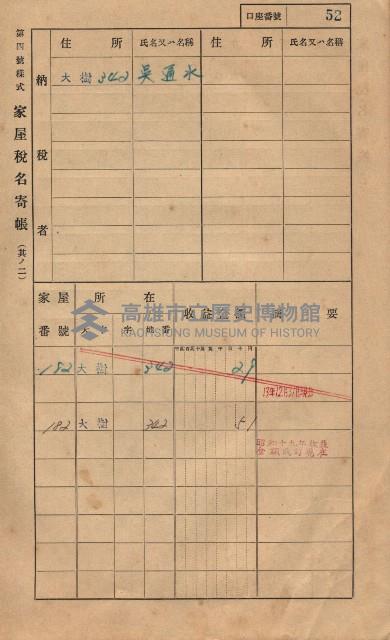 口座番號 52
第四號樣式 家屋稅名寄帳 (其ノ二)
納稅者
住所 氏名又ハ名稱 住所 氏名又ハ名稱
大樹 342 吳通水
家屋番號 所在 收益 摘要
大字 字 地番
182 大樹 342 29
182 大樹 342 51
昭和十九年
高雄市立歷史博物館
KAOHSIUNG MUSEUM OF HISTORY